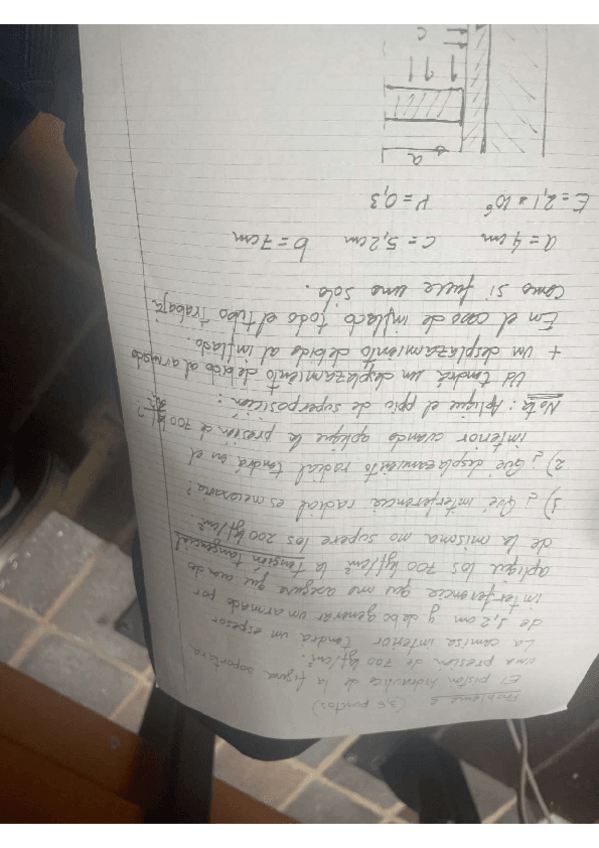 Problema 2 (3,5 puntos)
El pistón hidráulico de la figura soportará
una presión de 700 kgf/cm².
La camisa interior tendrá un espesor
de 1,2 cm y debo generar un armado por
interferencia que me asegure que cuando
aplique los 700 kgf/cm² la tensión tangencial
de la misma no supere los 200 kgf/cm²
1) ¿Qué interferencia radial es necesaria?
2) ¿Qué desplazamiento radial tendrá en el
interior cuando aplique la presión de 700 kgf/cm²?
Nota: Aplique el ppio de superposición:
Ud tendrá un desplazamiento debido al armado
+ un desplazamiento debido al inflado.
En el caso de inflado todo el tubo trabaja
como si fuera uno solo.
a = 4 cm c = 5,2 cm b = 7 cm
E = 2,1 * 10⁶ ν = 0,3
a
c